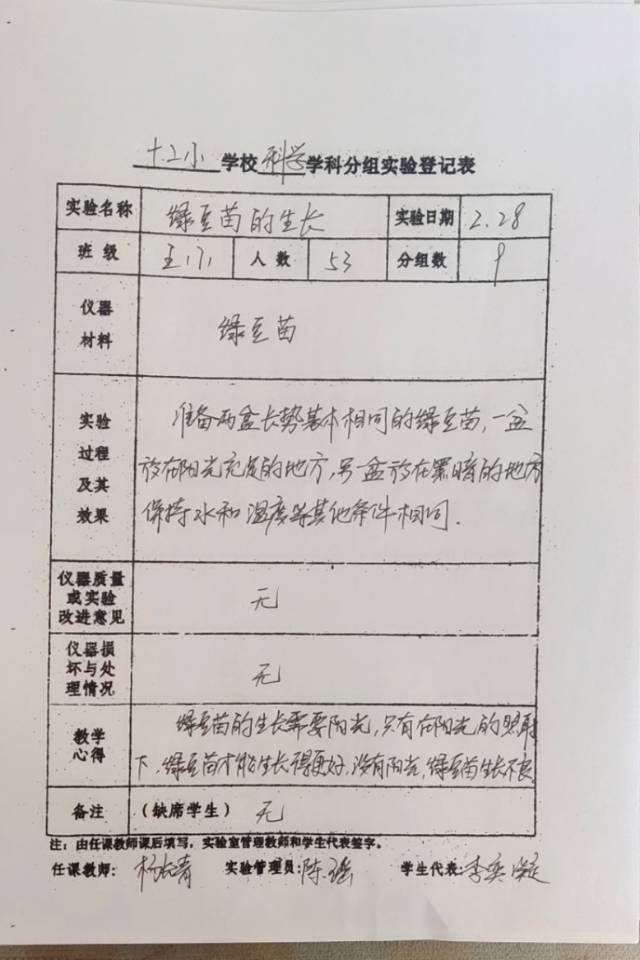 十二小 学校 科学 学科分组实验登记表
实验名称 绿豆苗的生长 实验日期 2.28
班 级 人 数 53 分组数 9
仪器
材料
绿豆苗
实验
过程
及其
效果
准备两盆长势基本相同的绿豆苗,一盆
放在阳光充足的地方,另一盆放在黑暗的地方
保持水和温度等其他条件相同.
仪器质量
或实验
改进意见
无
仪器损
坏与处
理情况
无
教学
心得
绿豆苗的生长需要阳光,只有在阳光的照射
下,绿豆苗才能生长得更好,没有阳光,绿豆苗生长不良
备注 (缺席学生) 无
注:由任课教师课后填写,实验室管理教师和学生代表签字。
任课教师: 杨长青 实验管理员: 陈瑶 学生代表: 李奕凝